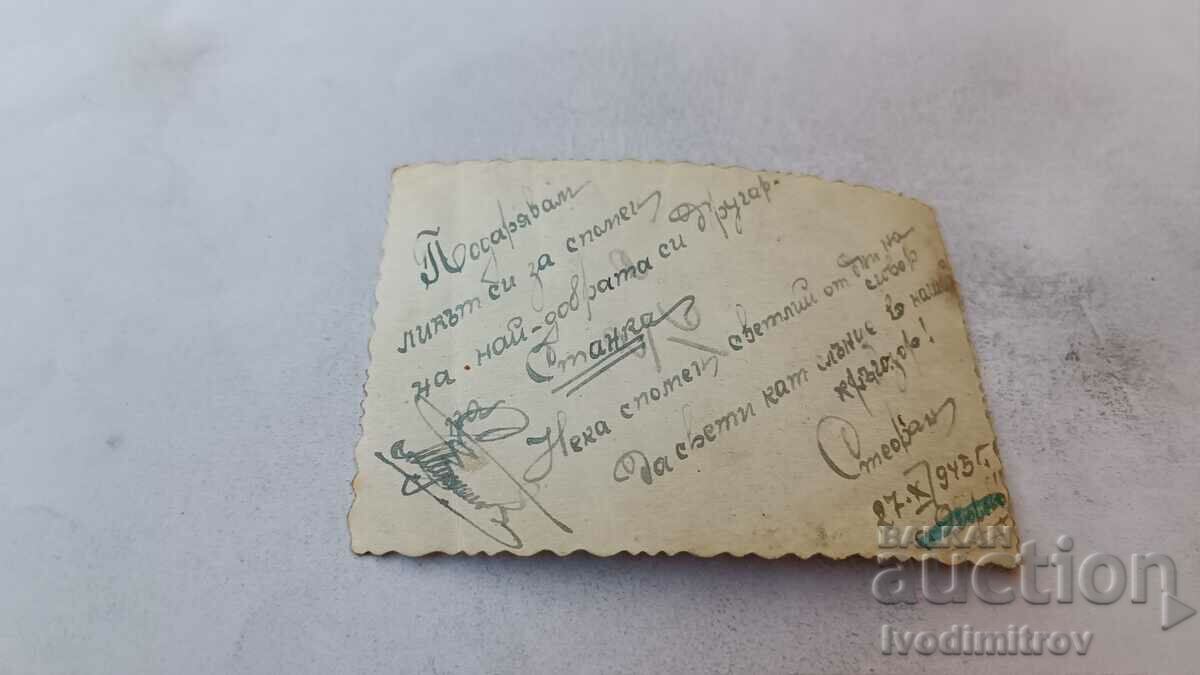 Подарявам
ликът си за спомен
на най-добрата си другар-
Станка
Нека спомен светлий от
сговор
Да свети кат слънце в наший
кръгозор!
Стефан
27.X/943г.
BALKAN
auction
Ivodimitrov